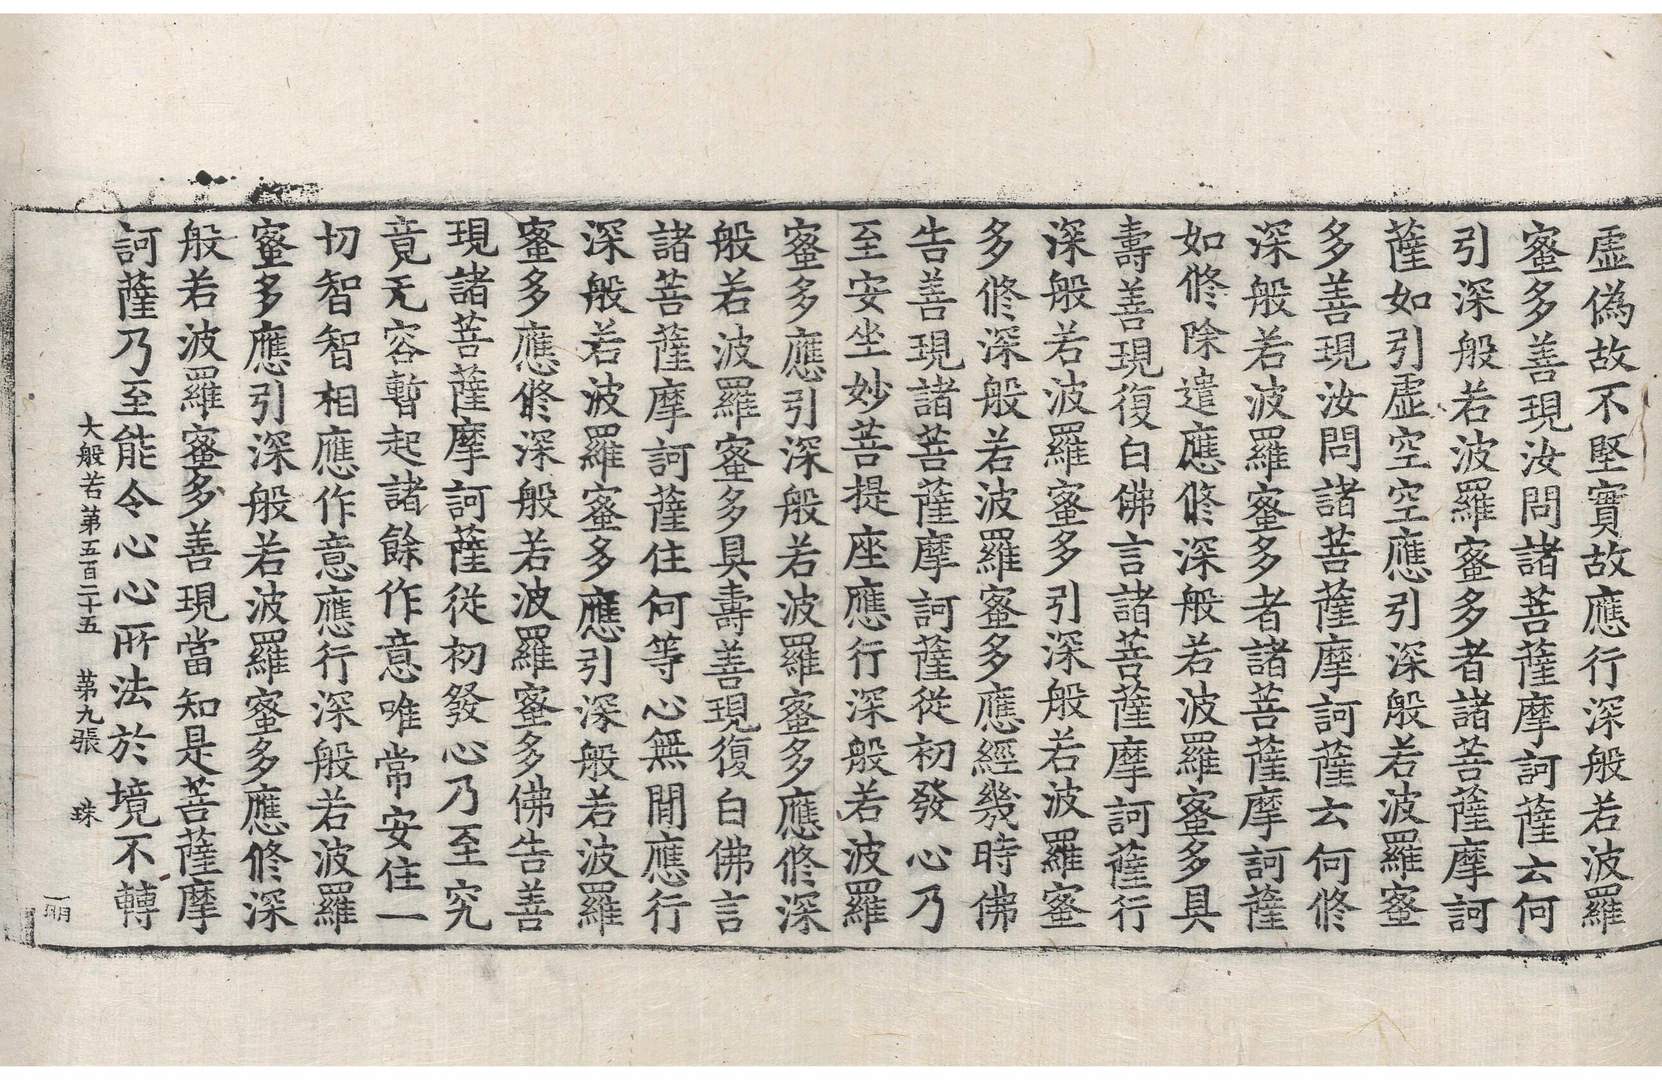 虛僞故不堅實故應行深般若波羅
蜜多善現汝問諸菩薩摩訶薩云何
引深般若波羅蜜多者諸菩薩摩訶
薩如引虛空空應引深般若波羅蜜
多善現汝問諸菩薩摩訶薩云何修
深般若波羅蜜多者諸菩薩摩訶薩
如修除遣應修深般若波羅蜜多具
壽善現復白佛言諸菩薩摩訶薩行
深般若波羅蜜多引深般若波羅蜜
多修深般若波羅蜜多應經幾時佛
告善現諸菩薩摩訶薩從初發心乃
至安坐妙菩提座應行深般若波羅
蜜多應引深般若波羅蜜多應修深
般若波羅蜜多具壽善現復白佛言
諸菩薩摩訶薩住何等心無閒應行
深般若波羅蜜多應引深般若波羅
蜜多應修深般若波羅蜜多佛告善
現諸菩薩摩訶薩從初發心乃至究
竟无容暫起諸餘作意唯常安住一
切智智相應作意應行深般若波羅
蜜多應引深般若波羅蜜多應修深
般若波羅蜜多善現當知是菩薩摩
訶薩乃至能令心心所法於境不轉
大般若第五百二十五 第九張 珠
一明